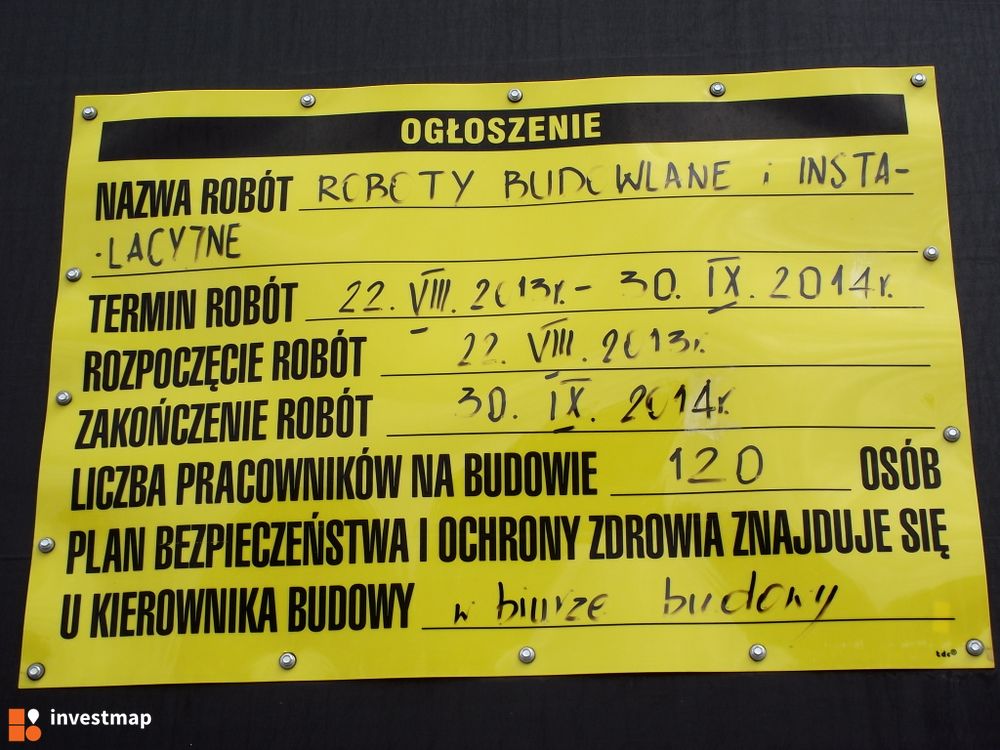 OGŁOSZENIE
NAZWA ROBÓT ROBOTY BUDOWLANE i INSTA-
-LACYJNE
TERMIN ROBÓT 22. VIII. 2013r. - 30. IX. 2014r.
ROZPOCZĘCIE ROBÓT 22. VIII. 2013r.
ZAKOŃCZENIE ROBÓT 30. IX. 2014r.
LICZBA PRACOWNIKÓW NA BUDOWIE 120 OSÓB
PLAN BEZPIECZEŃSTWA I OCHRONY ZDROWIA ZNAJDUJE SIĘ
U KIEROWNIKA BUDOWY w biurze budowy
tdc®
investmap